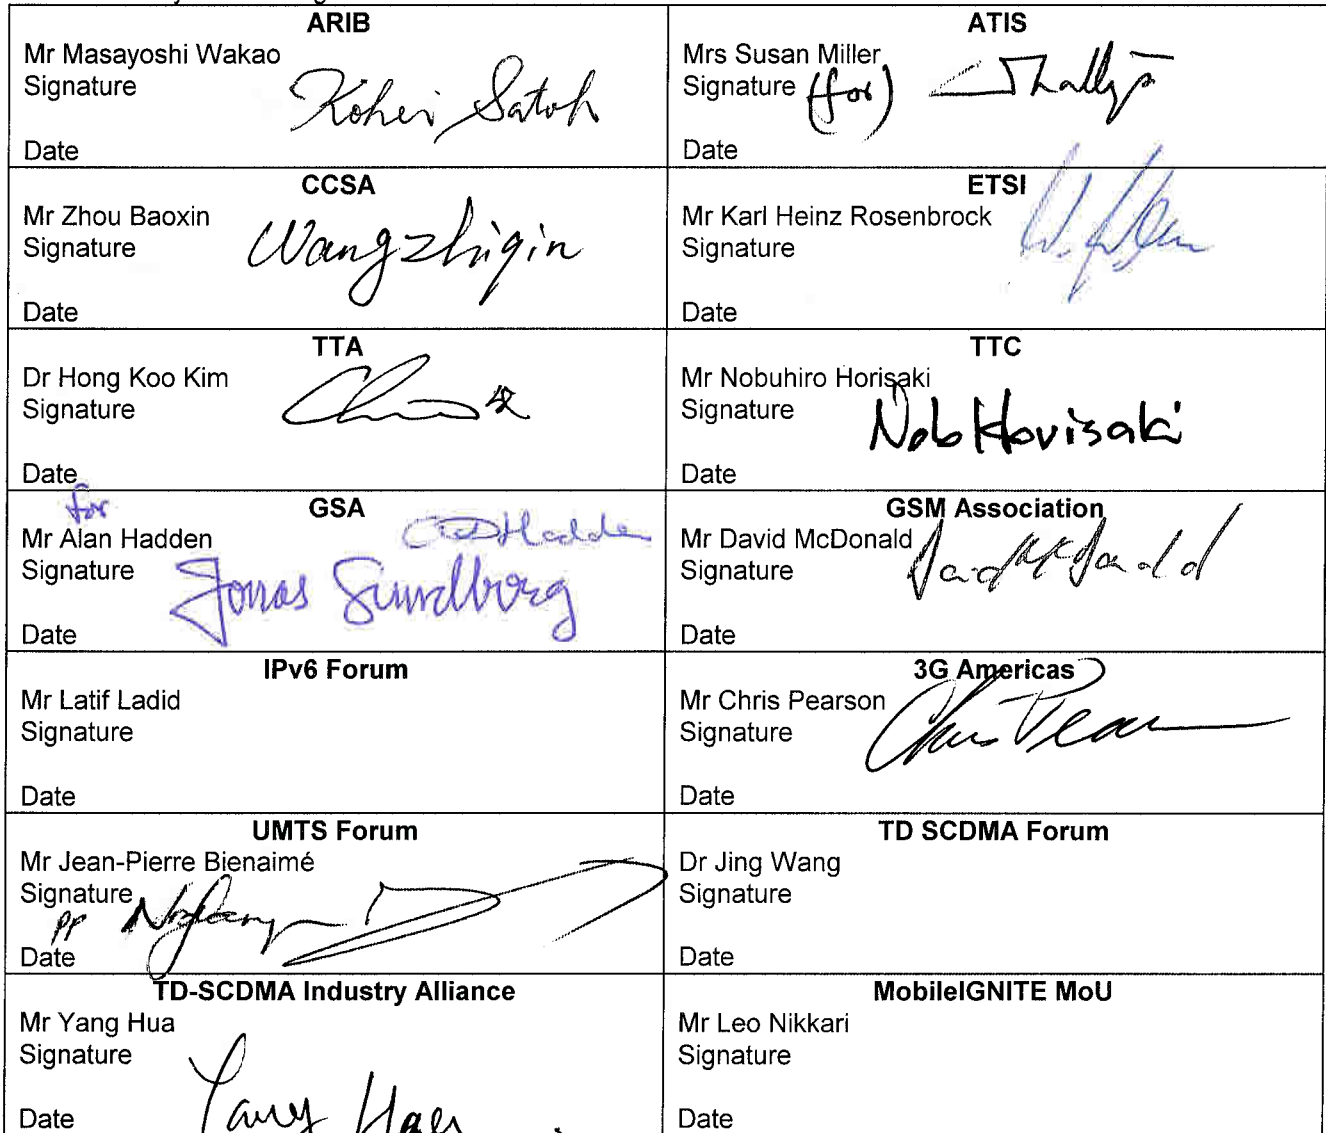 ARIB
Mr Masayoshi Wakao
Signature
Kohei Satoh
Date
ATIS
Mrs Susan Miller
Signature (for)
Date
CCSA
Mr Zhou Baoxin
Signature
Wangzhiqin
Date
ETSI
Mr Karl Heinz Rosenbrock
Signature
Date
TTA
Dr Hong Koo Kim
Signature
Date
TTC
Mr Nobuhiro Horisaki
Signature
Nob Horisaki
Date
for
GSA
Mr Alan Hadden
Hadden
Signature
Jonas Sundberg
Date
GSM Association
Mr David McDonald
Signature
David McDonald
Date
IPv6 Forum
Mr Latif Ladid
Signature
Date
3G Americas
Mr Chris Pearson
Signature
Chris Pear
Date
UMTS Forum
Mr Jean-Pierre Bienaimé
Signature
pp
Date
TD SCDMA Forum
Dr Jing Wang
Signature
Date
TD-SCDMA Industry Alliance
Mr Yang Hua
Signature
Yang Hua
Date
MobileIGNITE MoU
Mr Leo Nikkari
Signature
Date